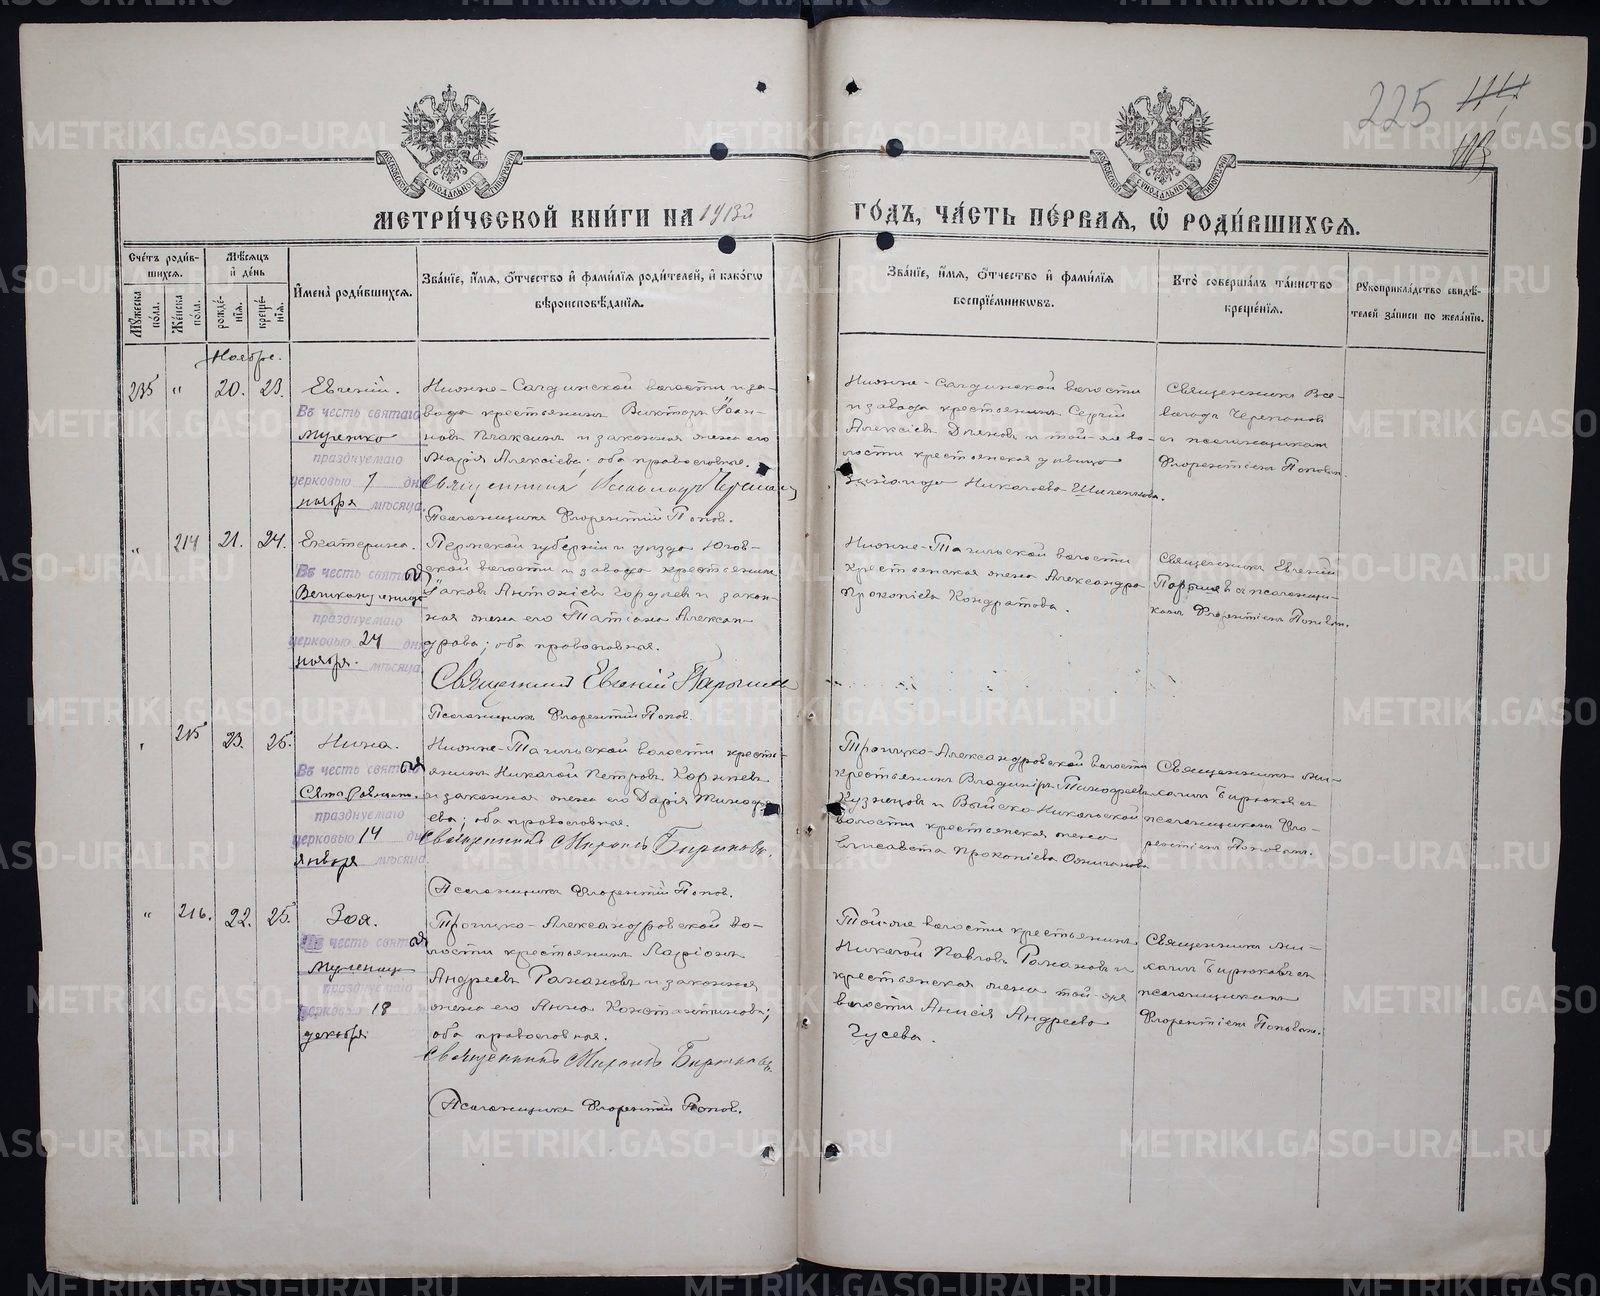 225
МЕТРИ́ЧЕСКОЙ КНИ́ГИ НА 1913й ГО́ДЪ, ЧА́СТЬ ПЕ́РВАЯ, Ѽ РОДИ́ВШИХСЯ.
Сче́тъ роди́вшихся.
Му́жеска по́ла.
Же́нска по́ла.
Мѣ́сяцъ и҆ де́нь
рожде́нїя.
креще́нїя.
И҆мена̀ роди́вшихся.
Зва́нїе, и҆́мя, ѻ҆́тчество и҆ фами́лїя роди́телей, и҆ како́гѡ
вѣроисповѣ́данїя.
Зва́нїе, и҆́мя, ѻ҆́тчество и҆ фами́лїя
воспрїе́мникѡвъ.
Кто̀ соверша́лъ та́инство
креще́нїя.
Рꙋкоприкла́дство свидѣ́-
телей за́писи по жела́нїю.
Ноябрь.
235 " 20. 23. Евгеній.
Въ честь святаго
празднуемаго
церковью 7 дня
ноября мѣсяца.
Нижне-Салдинской волости и за-
вода крестьянинъ Викторъ Іоан-
новъ Плаксинъ и законная жена его
Марія Алексіева: оба православные.
Священникъ
Псаломщикъ Флорентій Поповъ.
Нижне-Салдинской волости
и завода крестьянинъ Сергій
Алексіевъ и той-же во-
лости крестьянская дѣвица
Николаева
Священникъ Все-
володъ
съ псаломщикомъ
Флорентіемъ Поповымъ.
" 214 21. 24. Екатерина.
Въ честь святой
Великомученицы
празднуемаго
церковью 24 дня
ноября мѣсяца
Пермской губерніи и уѣзда Югов-
ской волости и завода крестьянинъ
Іаковъ Антоніевъ и закон-
ная жена его Татіана Алексан-
дрова; оба православные.
Священникъ Евгеній
Псаломщикъ Флорентій Поповъ.
Нижне-Тагильской волости
крестьянская жена Александра
Прокопіева Кондратова.
Священникъ Евгеній
съ псаломщи-
комъ Флорентіемъ Поповымъ.
" 215 23. 25. Нина.
Въ честь святой
празднуемаго
церковью 14 дня
января мѣсяца.
Нижне-Тагильской волости кресть-
янинъ Николай Петровъ
и законная жена его Дарія Тимофе-
ева; оба православные.
Священникъ Михаилъ Бирюковъ.
Псаломщикъ Флорентій Поповъ.
Троицко-Александровской волости
крестьянинъ Владиміръ Тимофеевъ
Кузнецовъ и Выйско-Никольской
волости крестьянская жена
Елисавета Прокопіева
Священникъ Ми-
хаилъ Бирюковъ съ
псаломщикомъ Фло-
рентіемъ Поповымъ.
" 216. 22. 25. Зоя.
Въ честь святой
Мученицы
празднуемаго
церковью 18
декабря
Троицко-Александровской во-
лости крестьянинъ Ларіонъ
Андреевъ Романовъ и законная
жена его Анна Константинова;
оба православные.
Священникъ Михаилъ Бирюковъ.
Псаломщикъ Флорентій Поповъ.
Той-же волости крестьянинъ
Николай Павловъ Романовъ и
крестьянская жена той-же
волости Анисія Андреева
Гусева.
Священникъ Ми-
хаилъ Бирюковъ съ
псаломщикомъ
Флорентіемъ Поповымъ.
METRIKI.GASO-URAL.RU